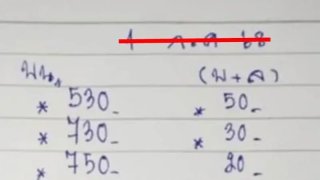 1 ก.ค 68
นน. (บ+ล)
* 530.- * 50.-
* 730.- * 30.-
* 750.- 20.-